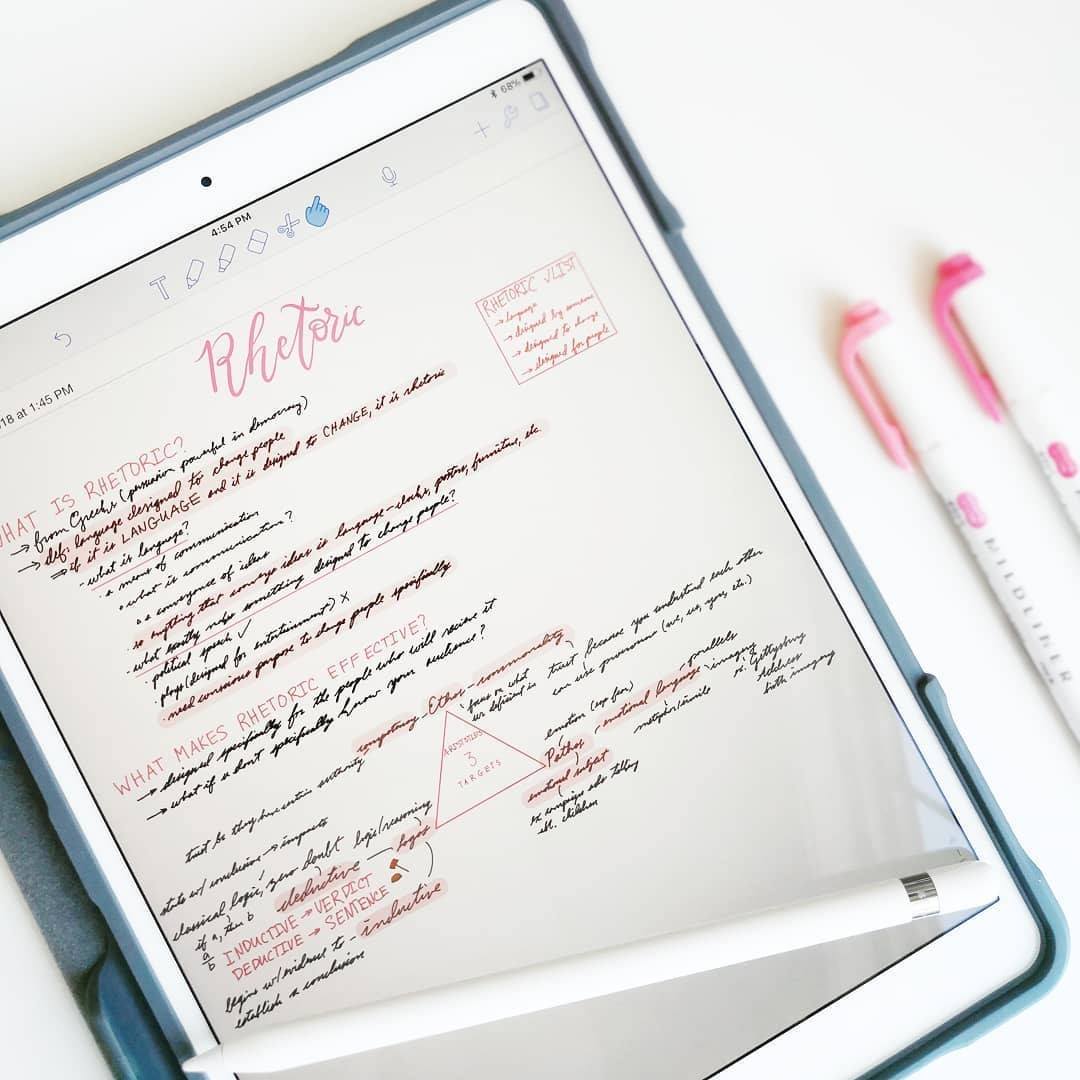 68%
4:54 PM
T
18 at 1:45 PM
Rhetoric
RHETORIC √LIST
→ language
→ designed by someone
→ designed to change
→ designed for people
WHAT IS RHETORIC?
→ from Greeks (persuasion powerful in democracy)
→ def: language designed to change people
⇒ if it is LANGUAGE and it is designed to CHANGE, it is rhetoric
- what is language?
a means of communication
• what is communication?
a conveyance of ideas
so anything that conveys ideas is language - clocks, posters, furniture, etc.
- what exactly makes something designed to change people?
political speech ✓
plays (designed for entertainment) x
• need conscious purpose to change people specifically
WHAT MAKES RHETORIC EFFECTIVE?
→ designed specifically for the people who will receive it
→ what if u don't specifically know your audience?
competency - Ethos - commonality
trust bc they have certain authority
focus on what
ur different in
trust because you understand each other
can use pronouns (we, us, you, etc.)
ARISTOTLE'S
3
TARGETS
emotion
Pathos - emotional language
- parallels
- imagery
metaphor/simile
ex. Gettysburg
Address
birth imagery
emotional subject
ex campaign ads talking
abt. children
logos
logic/reasoning
starts w/ conclusion → impacts
classical logic, zero doubt
if a, then b
a
b
deductive
INDUCTIVE → VERDICT
DEDUCTIVE → SENTENCE
begins w/ evidence to - inductive
establish a conclusion
MILDLINER